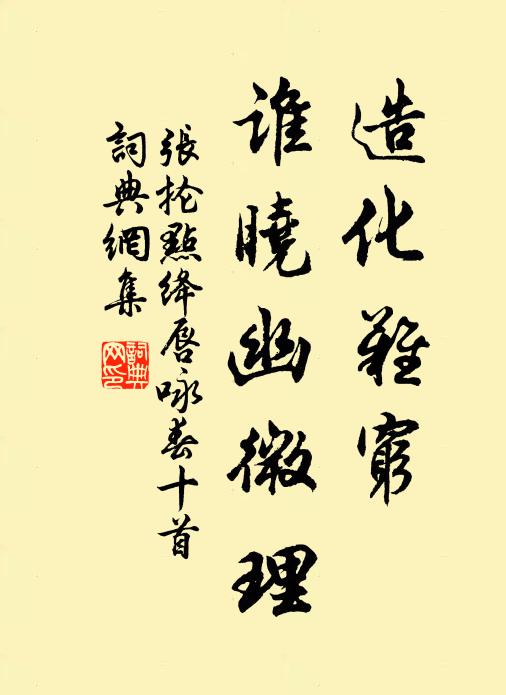 造化難窮
誰曉幽微理
張掄點絳唇咏春十首
詞典網集
詞典
网印